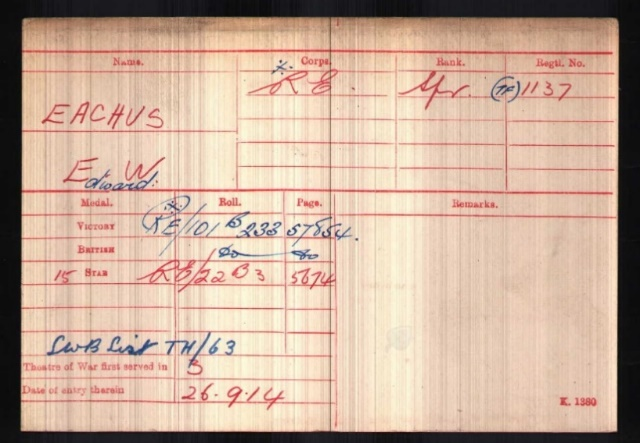 Name. Corps. Rank. Regtl. No.
EACHUS RE Spr. (TF) 1137
E W
dward:
Medal. Roll. Page. Remarks.
VICTORY RE/101 B 233 57854.
BRITISH do do
15 STAR RE/22 B 3 5674
SWB List TH/63
Theatre of War first served in 3
Date of entry therein 26.9.14
K. 1380